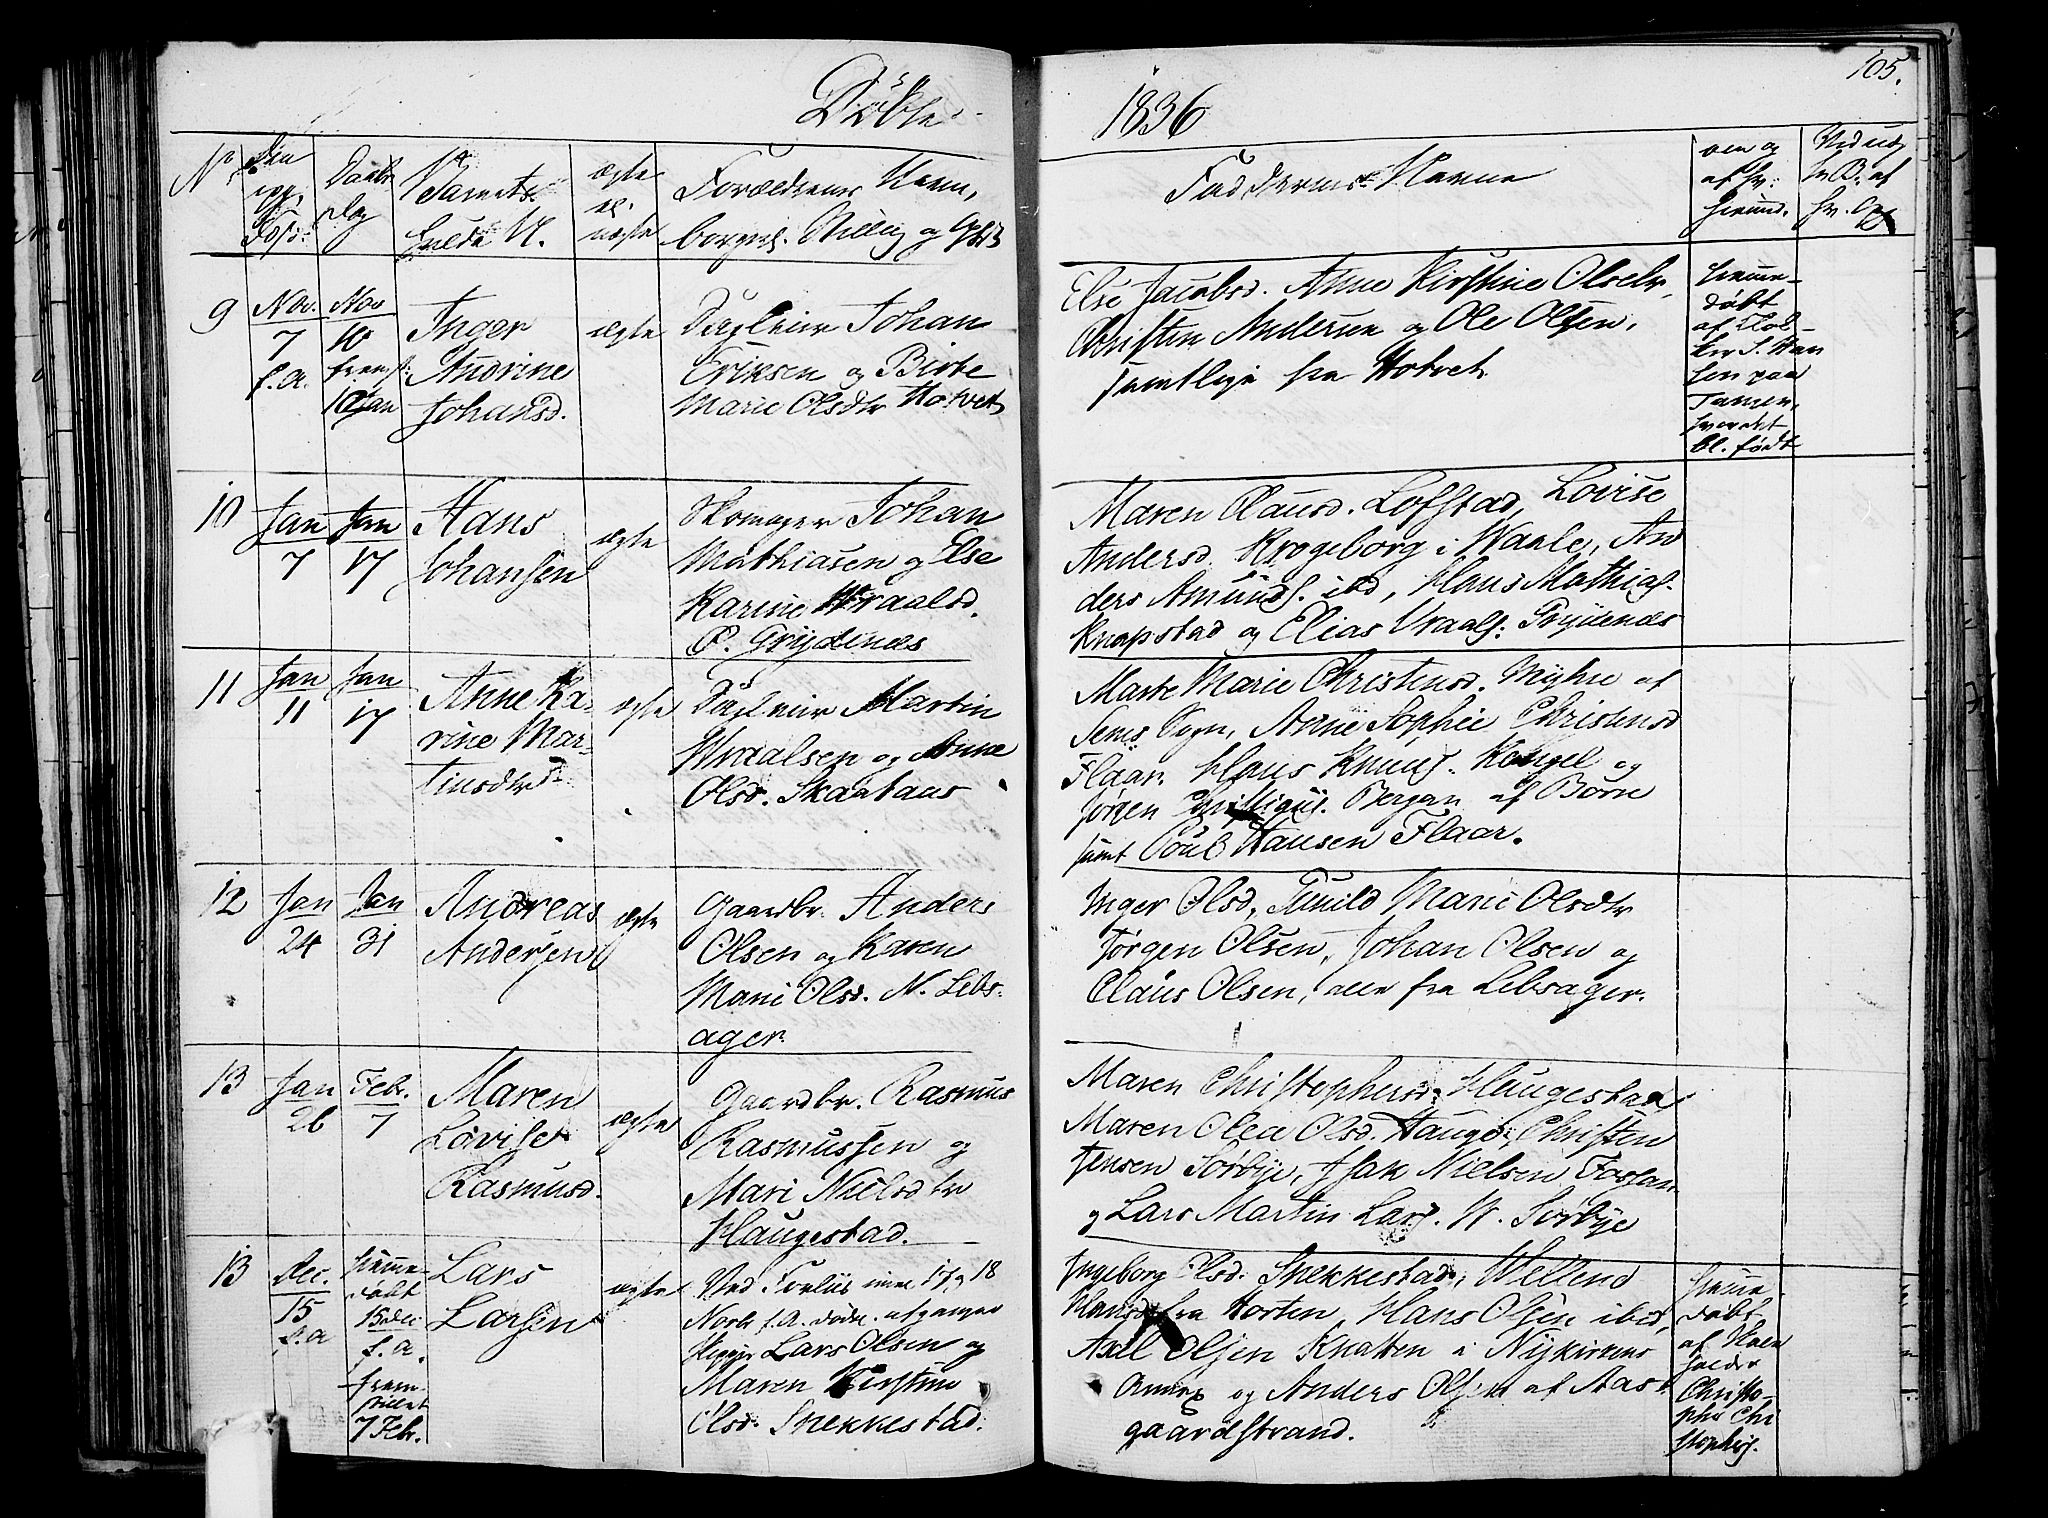 Döbte
1836
105.
No
Daabs
Dag
Barnets
fulde N.
ægte
el.
uægte
Forældrenes Navn,
borgerl. Stilling og
Faddernes Navne
om og
af hv:
9
Nov.
7
f. a.
Nov
10
10 Jan
Inger
Andrine
Johansd.
ægte
Dagleier Johan
Eriksen og Birte
Marie Olsdtr Hotvet
Else Jacobsd. Anne Kirstine Olsdtr,
Christen Andersen og Ole Olsen,
samtlige fra Hotvet
hjemme-
döbt
af
paa
bl. födt
10
Jan
7
Jan
17
Hans
Johansen
ægte
Skomager Johan
Mathiasen og Else
Karine Wraalsd.
P. Grydenæs
Maren Clausd. Lofstad, Lovise
Andersd. Krogeborg i Waale, An
ders Amunds. ibd, Hans Mathias.
Knapstad og Elias Vraals: Grydenæs
11
Jan
11
Jan
17
Anne Ka-
rine Mar-
tinsdtr
ægte
Dagleier Martin
Wraalsen og Anne
Olsd. Skaataas
Marte Marie Christensd. Myhre af
Sems Sogn, Anne Sophie Christensd
Flaar, Hans Knuds. Kongel og
Jörgen Bergan af Borre
samt Poul Hansen Flaar.
12
Jan
24
Jan
31
Andreas
Andersen
ægte
Gaardbr. Anders
Olsen og Karen
Marie Olsd. N. Lebs-
ager
Inger Olsd, Gunild Marie Olsdtr
Jörgen Olsen, Johan Olsen og
Claus Olsen, alle fra Lebsager.
13
Jan
26
Febr.
7
Maren
Lovise
Rasmusd.
ægte
Gaardbr. Rasmus
Rasmussen og
Mari Nielsdtr
Haugestad.
Maren Christophersd. Haugestad
Maren Olea Olsd. Haugd, Christen
Jensen Sörbye, Isak Nielsen Fossan
og Lars Martin Lars. W. Sörbye
13
Dec.
15
f. a
hjemme-
döbt
15 Dec
f. a.
frem-
stillet
7 Febr.
Lars
Larsen
ægte
17 og 18
Novb f. A. döde afgangne
Lars Olsen og
Maren Kirstine
Olsd: Snekkestad.
Ingeborg Olsd. Snekkestad,
fra Horten, Hans Olsen ibid,
Axel Olsen Knatten i Nykirkens
Annex og Anders Olsen af Aas-
gaardstrand.
hjemme-
döbt
af
Christo-
pher Chri
stophers.